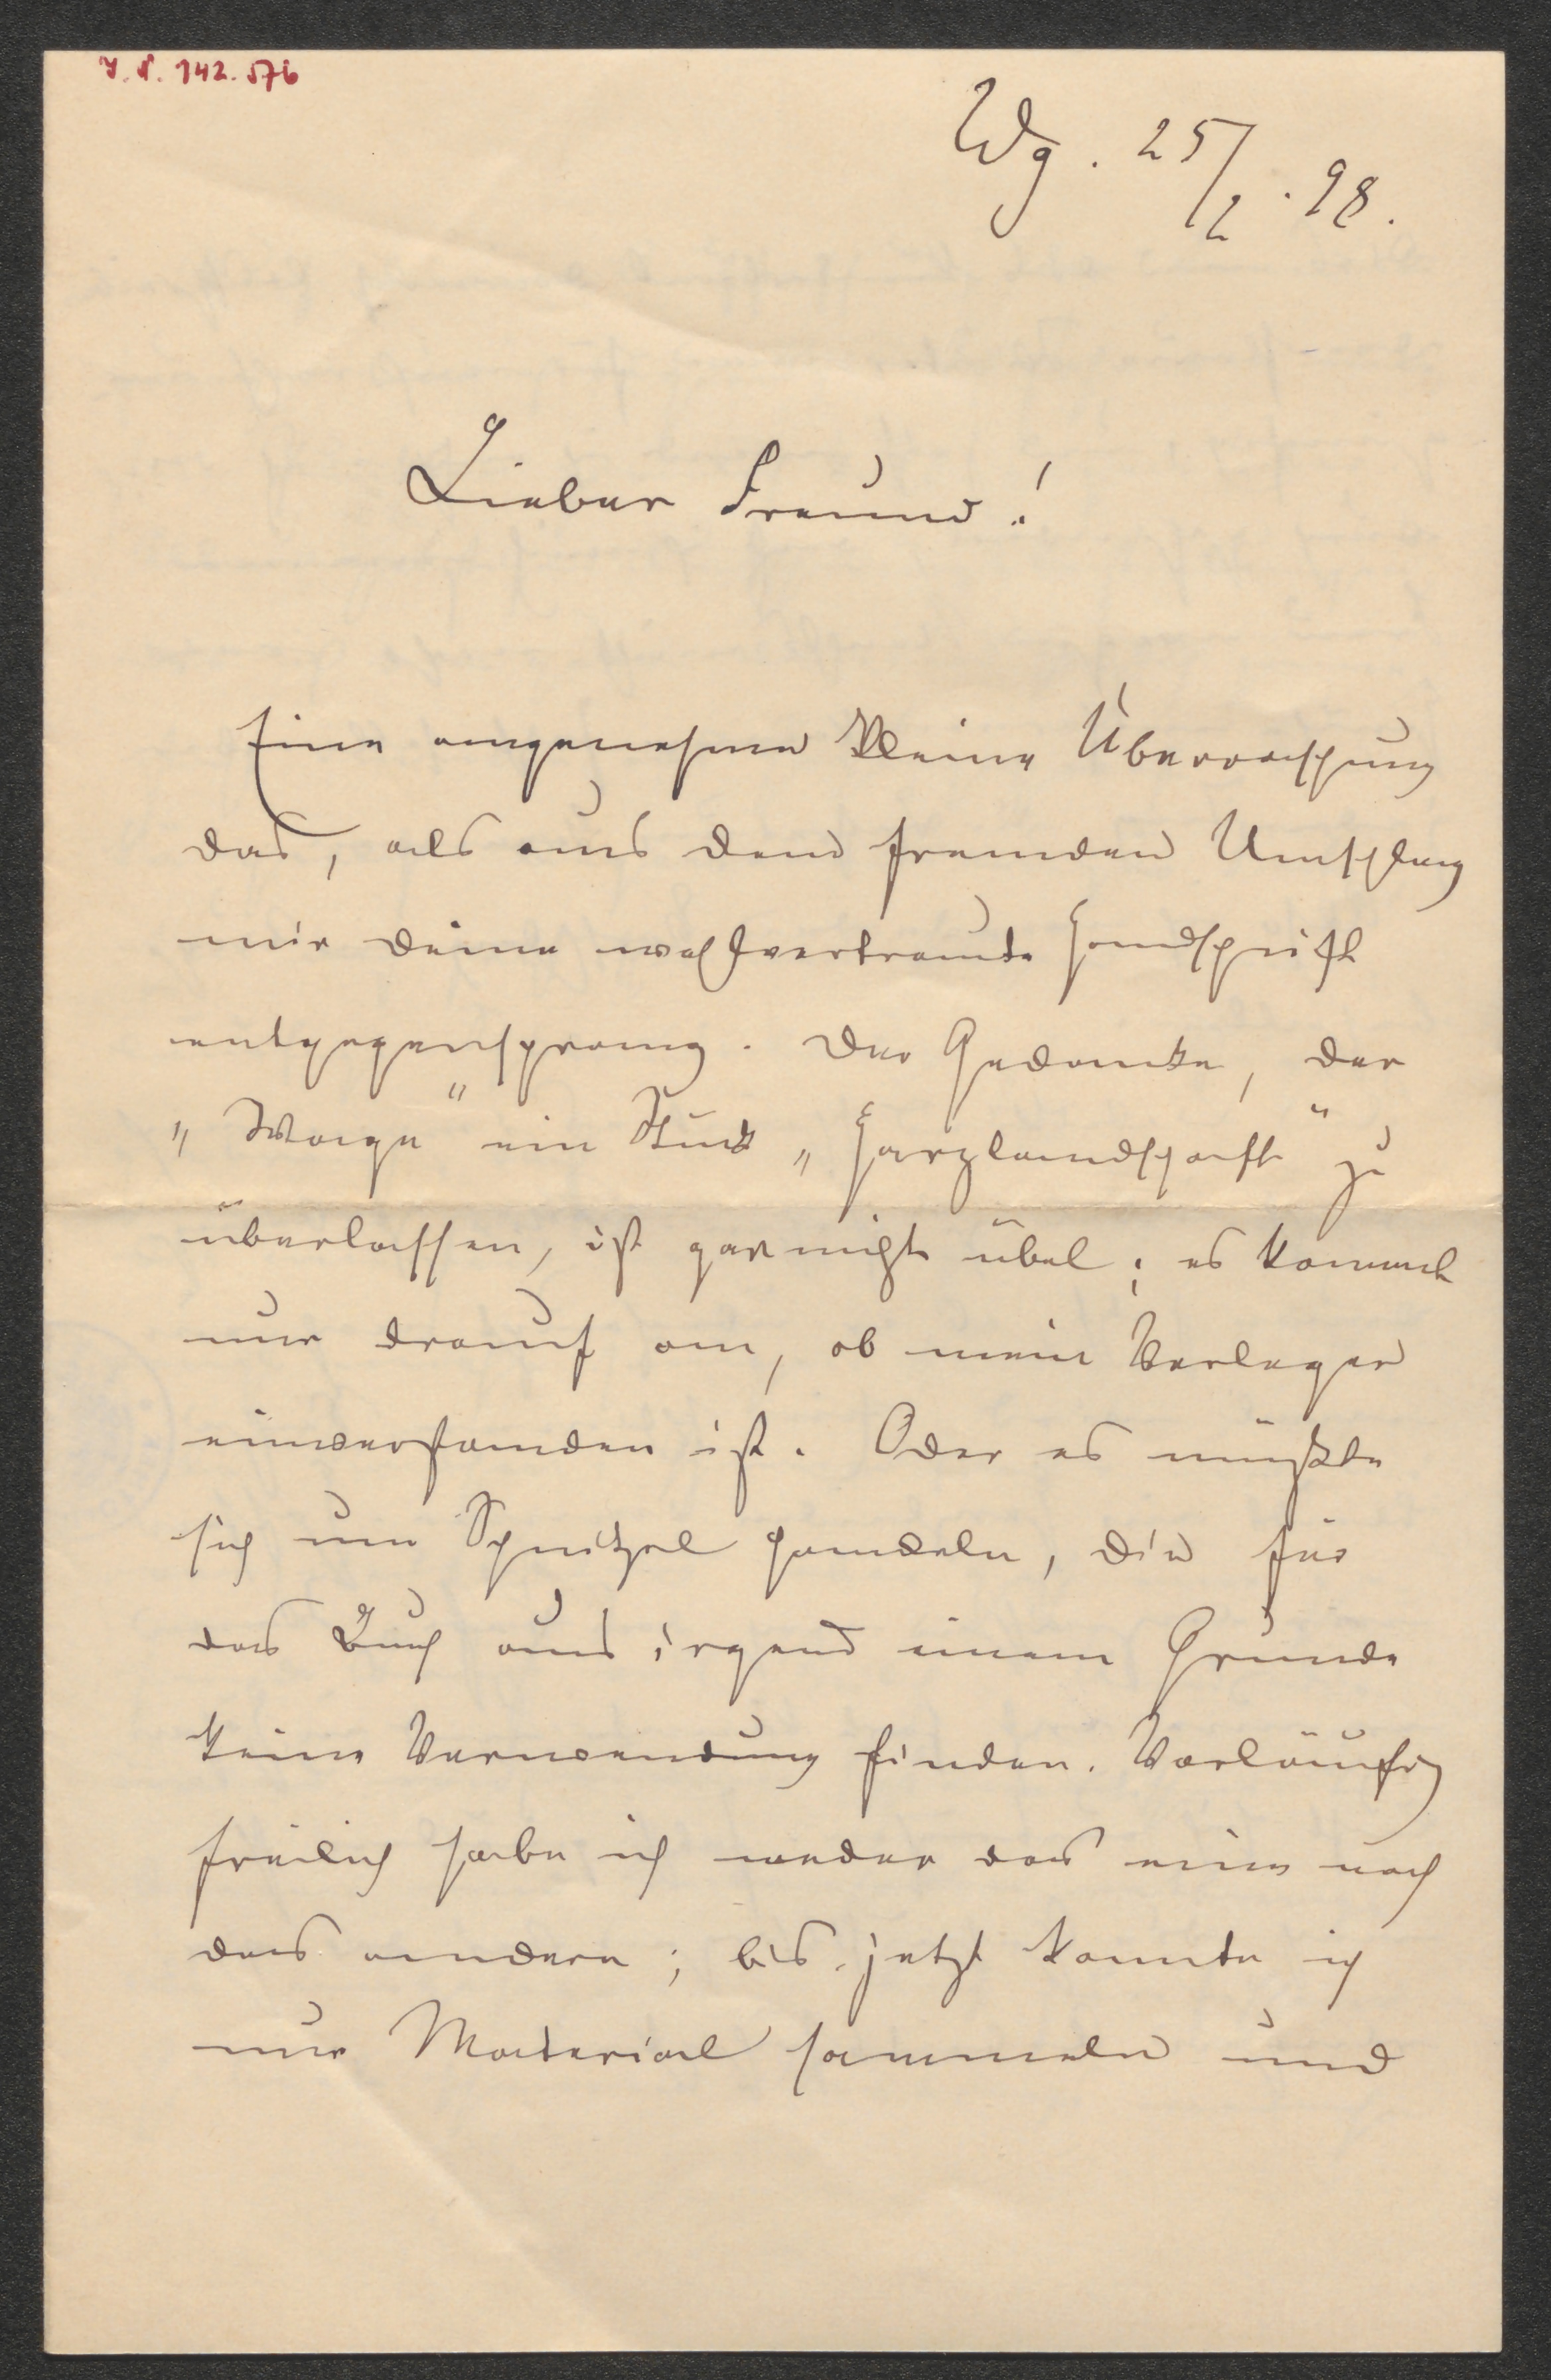 I. N. 142.576
Wg. 25/2. 98.
Lieber Freund!
Eine angenehme kleine Überraschung
das, als aus dem fremden Umschlag
mir deine wohlvertraute Handschrift
entgegensprang. Der Gedanke, der
„Wage" ein Stück „Harzlandschaft" zu
überlassen, ist gar nicht übel; es kommt
nur drauf an, ob mein Verleger
einverstanden ist. Oder es müßte
sich um Schnitzel handeln, die für
das Buch aus irgend einem Grunde
keine Verwendung finden. Vorläufig
freilich habe ich weder das eine noch
das andere; bis jetzt konnte ich
nur Material sammeln und